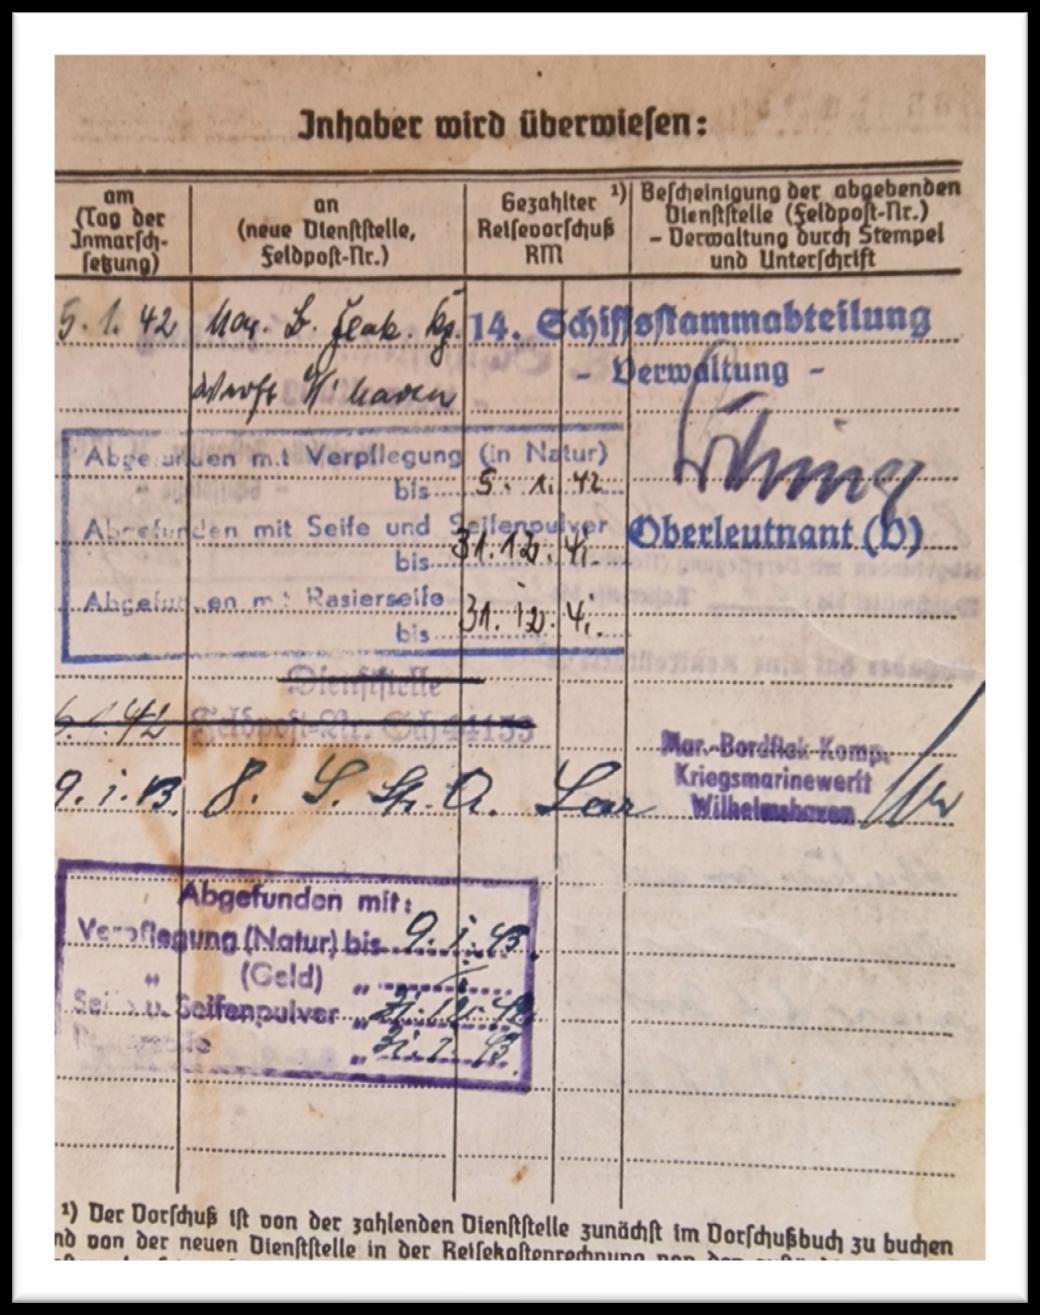 Inhaber wird überwiesen:
am
(Tag der
Inmarsch-
setzung)
an
(neue Dienststelle,
Feldpost-Nr.)
Gezahlter ¹)
Reisevorschuß
RM
Bescheinigung der abgebenden
Dienststelle (Feldpost-Nr.)
- Verwaltung durch Stempel
und Unterschrift
5.1.42 Mar. B. Flak. Kp. 14. Schiffsstammabteilung
- Verwaltung -
Werft W'haven
Abgefunden mit Verpflegung (in Natur)
bis 5. 1. 42
Abgefunden mit Seife und Seifenpulver
bis 31.12. 41.
Oberleutnant (V)
Abgefunden mit Rasierseife
bis 31. 12. 41.
Dienststelle
Feldpost-Nr. Sch 44153
Mar.-Bordflak-Komp.
Kriegsmarinewerft
Wilhelmshaven
9.1.43 8. S. St. A. Leer
Abgefunden mit:
Verpflegung (Natur) bis 9.1.43.
" (Geld) "
Seife u. Seifenpulver " 31.12.42
Rasierseife " 31.1.43
¹) Der Vorschuß ist von der zahlenden Dienststelle zunächst im Vorschußbuch zu buchen
nd von der neuen Dienststelle in der Reisekostenrechnung von den